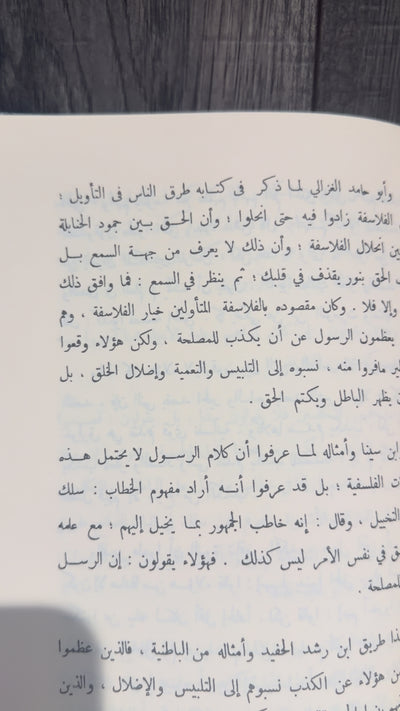 وأبو حامد الغزالي لما ذكر في كتابه طرق الناس في التأويل ؛
الفلاسفة زادوا فيه حتى انحلوا ؛ وأن الحق بين جمود الحنابلة
بين انحلال الفلاسفة ؛ وأن ذلك لا يعرف من جهة السمع بل
الحق بنور يقذف في قلبك ؛ ثم ينظر في السمع : فما وافق ذلك
وإلا فلا . وكان مقصوده بالفلاسفة المتأولين خيار الفلاسفة ، وهم
يعظمون الرسول عن أن يكذب للمصلحة ، ولكن هؤلاء وقعوا
مافروا منه ، نسبوه إلى التلبيس والتعمية وإضلال الخلق . بل
يظهر الباطل ويكتم الحق .
ابن سينا وأمثاله لما عرفوا أن كلام الرسول لا يحتمل هذه
الفلسفية ؛ بل قد عرفوا أنه أراد مفهوم الخطاب : سلك
التخييل ، وقال : إنه خاطب الجمهور بما يخيل إليهم ؛ مع علمه
في نفس الأمر ليس كذلك . فهؤلاء يقولون : إن الرسل
للمصلحة .
طريق ابن رشد الحفيد وأمثاله من الباطنية ، فالذين عظموا
من هؤلاء عن الكذب نسبوهم إلى التلبيس والإضلال ، والذين